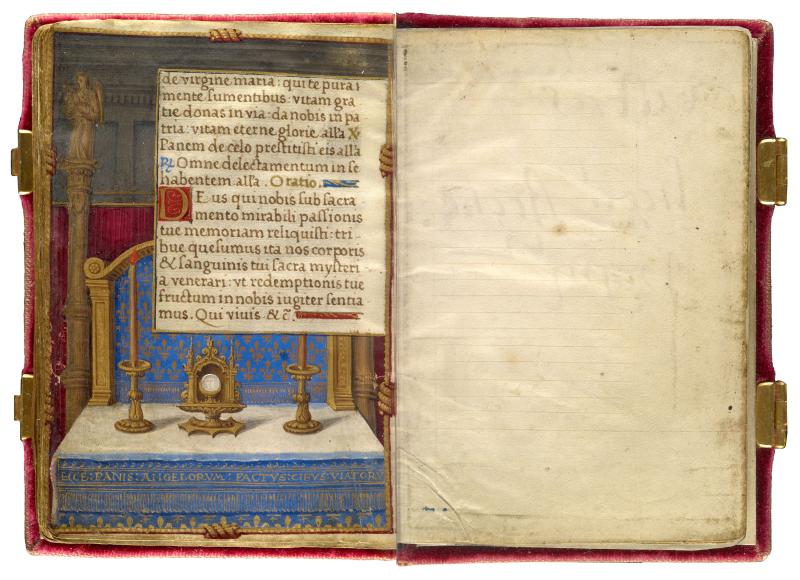 de virgine maria: qui te pura
mente sumentibus: vitam gra
tie donas in via: da nobis in pa
tria: vitam eterne glorie. alľa
Panem de celo prestitisti eis allā
Omne delectamentum in se
habentem. alľa. Oratio.
DEus qui nobis sub sacra
mento mirabili passionis
tue memoriam reliquisti: tri
bue quesumus ita nos corporis
& sanguinis tui sacra mysteri
a venerari: vt redemptionis tue
fructum in nobis iugiter sentia
mus. Qui viuis & c̄.
ECCE: PANIS: ANGELORVM: FACTVS: CIBVS: VIATOR